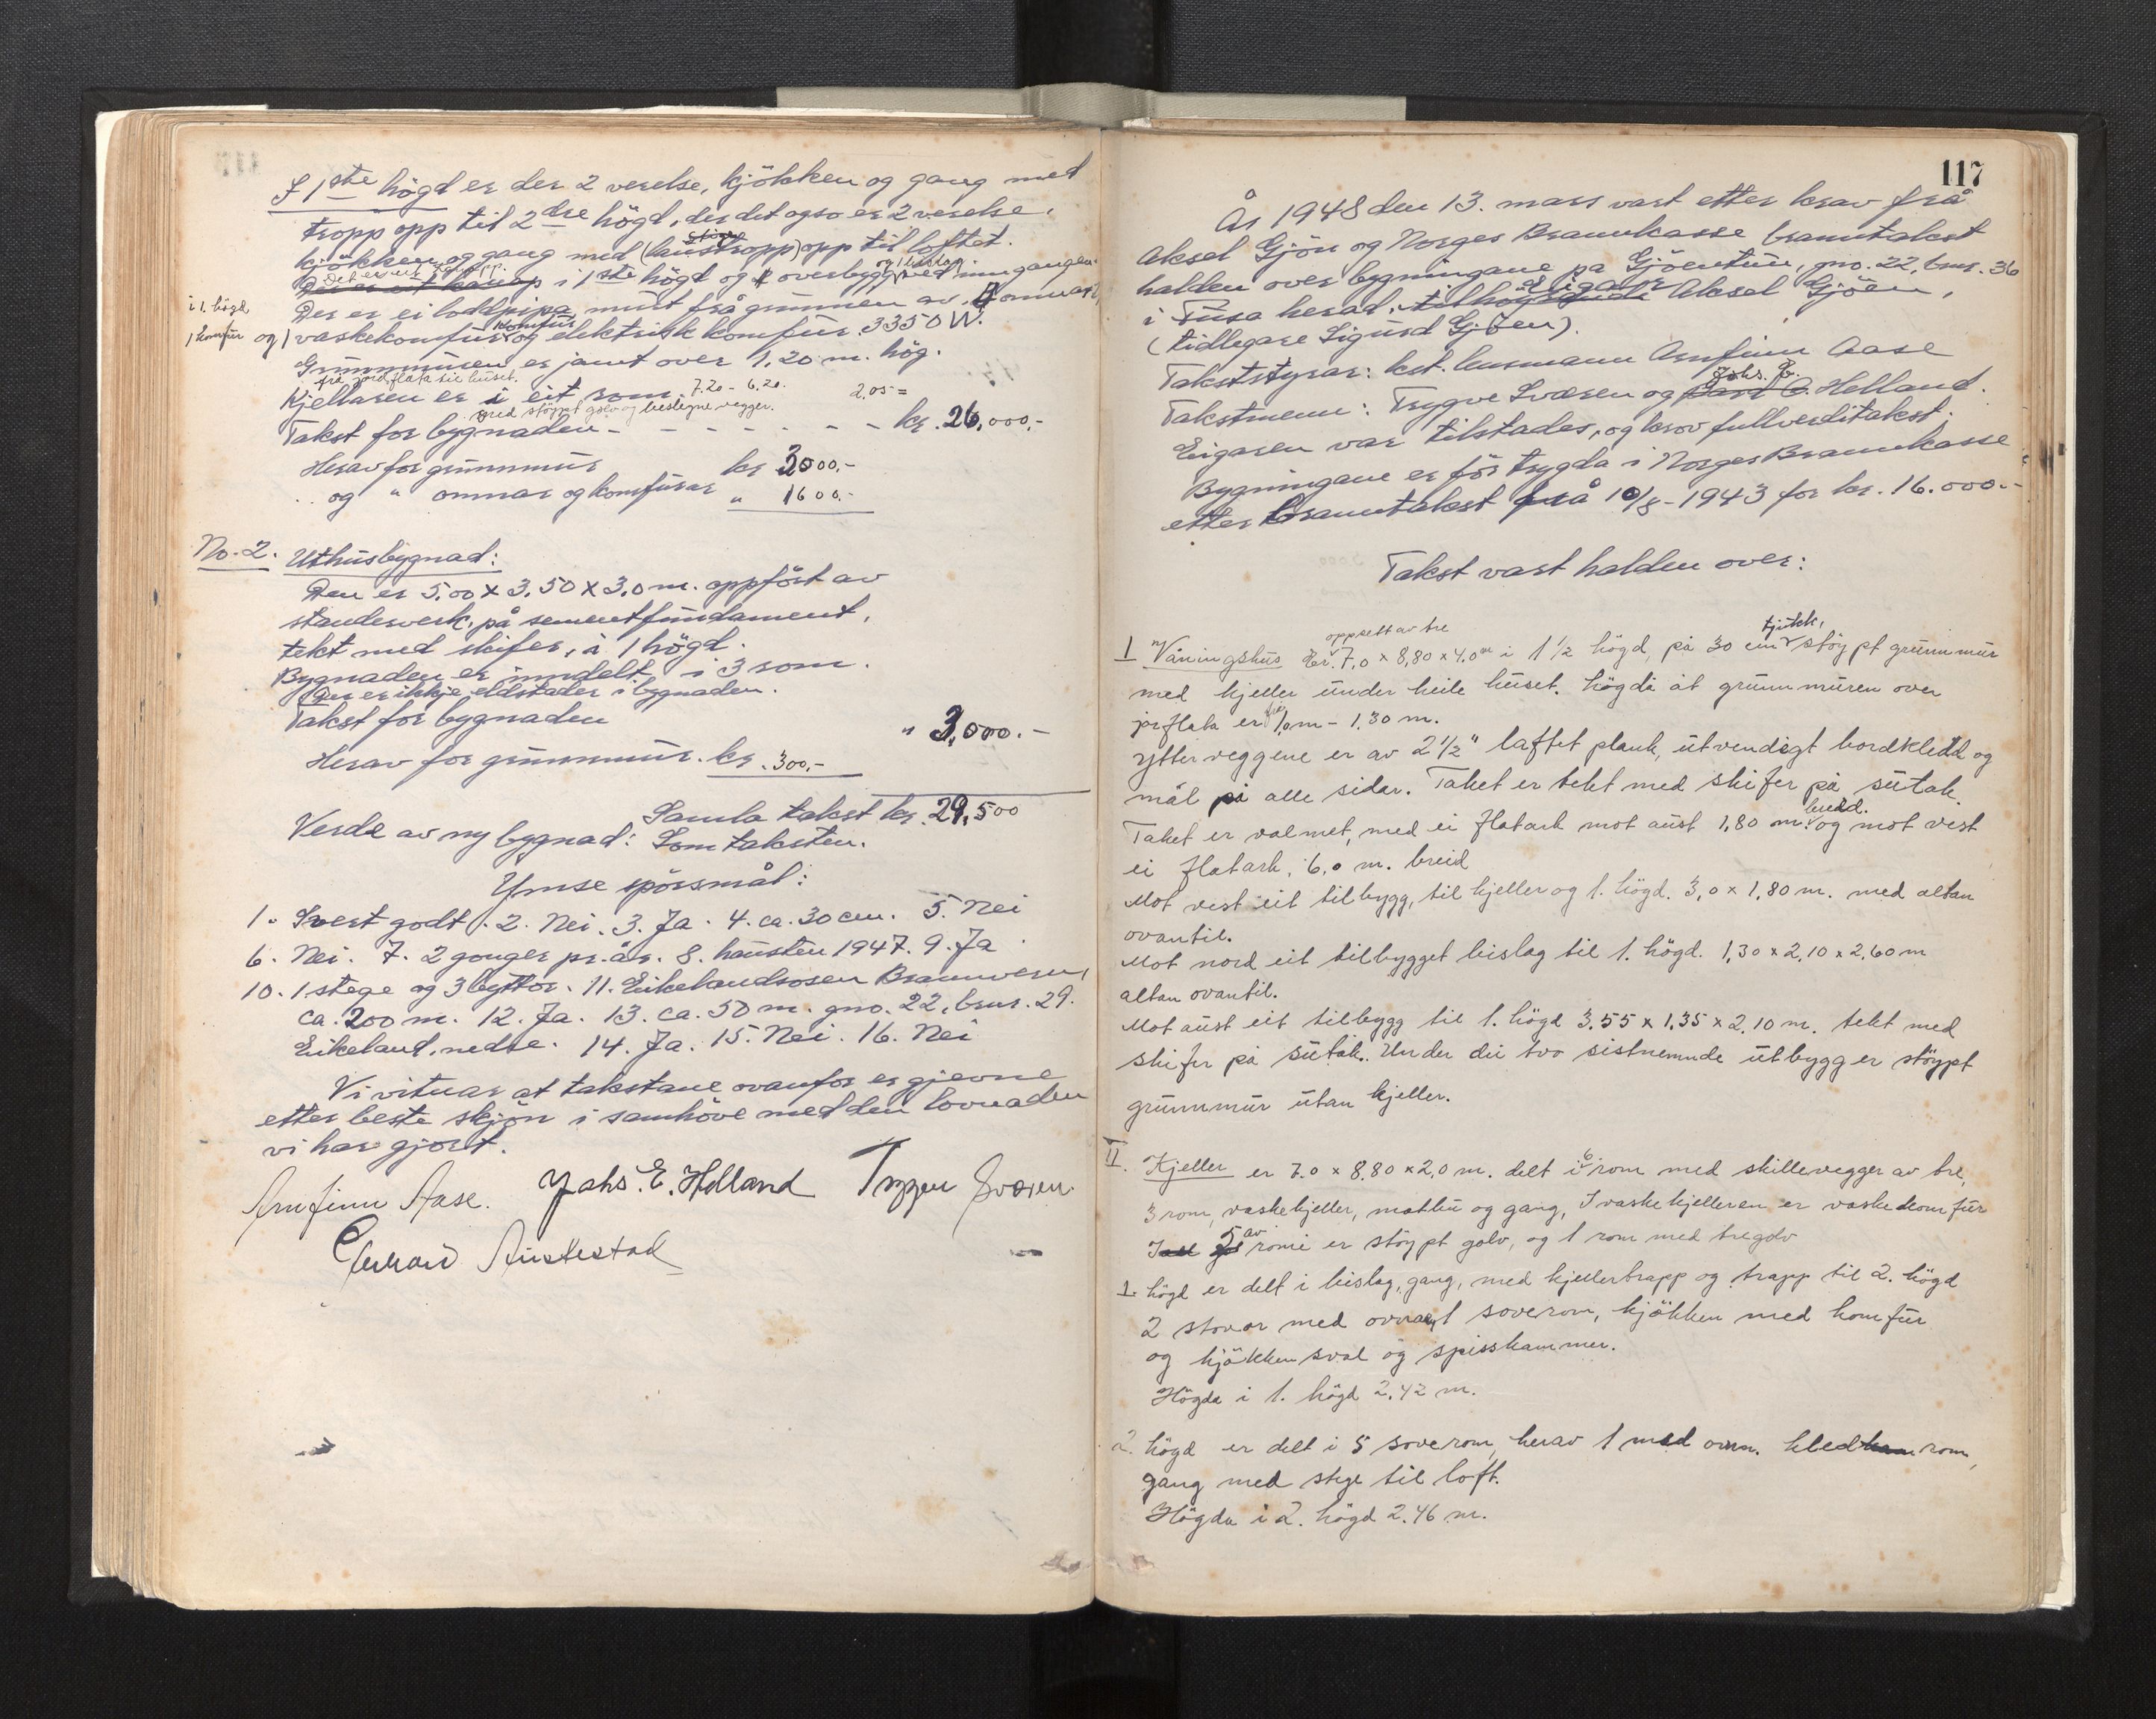 I 1ste högd er der 2 verelse, kjökken og gang med
tropp opp til 2dre högd, der det ogso er 2 verelse,
kjökken og gang med (laustropp) opp til loftet.
stige
i 1ste högd og 1 overbygg ved inngangen.
og 1 bislag
Der er ei loddpipa murt frå grunnen av. omnar,
i 1. högd
1 komfur og 1 vaskekomfur og elektrisk komfur. 3350 W.
komfur
Grunnmuren er jamt over 1.20 m. hög.
frå jord flata til huset.
Kjellaren er i eit rom. 7.20 - 6.20. 2,05 =
med støypt golv og beslegne vegger.
Takst for bygnaden - - - - - - - kr. 26,000,-
Herav for grunnmur kr 3000,-
.. og " omnar og komfurar " 1600.-
No. 2. Uthusbygnad:
Den er 5.00 x 3.50 x 3.0 m. oppfört av
standerverk, på sementfundament,
tekt med skifer, i 1 högd.
Bygnaden er inndelt i 3 rom.
Der er ikkje eldstader i bygnaden.
Takst for bygnaden " 3,000.-
Herav for grunnmur. kr. 300,-
Samla takst kr. 29,500
Verde av ny bygnad: Som taksten.
Ymse spörsmål:
1. Svert godt. 2. Nei. 3. Ja. 4. ca. 30 cm. 5. Nei
6. Nei. 7. 2 gonger pr. år. 8. hausten 1947. 9. Ja.
10. 1 stege og 3 byttor. 11. Eikelandsosen Brannvern,
ca. 200 m. 12. Ja. 13. ca. 50 m. gno. 22, bnr. 29.
Eikeland, nedre. 14. Ja. 15. Nei. 16. Nei
Vi vitnar at takstane ovanfor er gjevne
etter beste skjön i samhöve med den lovnaden
vi har gjort.
Arnfinn Aase. Johs. E. Helland Trygve Sværen.
Gerhard Austestad
117
År 1948 den 13. mars vart etter krav frå
Aksel Gjön og Norges Brannkasse branntakst
halden over bygningane på Gjöentun, gno. 22, bnr. 36
i Fusa herad, tilhöyrande Aksel Gjöen,
eigar
(tidlegare Sigurd Gjöen).
Takststyrar: kst. lensmann Arnfinn Aase
Takstmenn: Trygve Sværen og Johs. E. Helland.
Eigaren var tilstades, og krov fullverditakst.
Bygningane er för trygda i Norges Brannkasse
etter branntakst frå 10/8-1943 for kr. 16.000.-
Takst vart halden over:
I Våningshus Er. 7,0 x 8,80 x 4,0 m i 1 1/2 högd, på 30 cm tjukk, støypt grunnmur
oppsett av tre
med kjeller under heile huset. högdi åt grunnmuren over
jorflata er frå 1,0 m - 1.30 m.
ytterveggene er av 2 1/2" laftet plank, utvendigt bordkledd og
mål på alle sidar. Taket er tekt med skifer på sutak.
Taket er valmet, med ei flatark mot aust 1,80 m. breid. og mot vest
ei flatark, 6,0 m. breid
Mot vest eit tilbygg, til kjeller og 1. högd. 3,0 x 1,80 m. med altan
ovantil.
Mot nord eit tilbygget bislag til 1. högd. 1,30 x 2,10 x 2,60 m
altan ovantil.
Mot aust eit tilbygg til 1. högd 3.55 x 1,35 x 2,10 m. tekt med
skifer på sutak. Under dei tvo sistnemnde utbygg er støypt
grunnmur utan kjeller.
II. Kjeller er 7.0 x 8.80 x 2,0 m. delt i 6 rom med skillevegger av tre,
3 rom, vaskekjeller, matbu og gang, I vaskekjelleren er vaskekomfur
I 5 av romi er støypt golv, og 1 rom med tregolv
1. högd er delt i bislag, gang, med kjellertrapp og trapp til 2. högd
2 stovor med ovnar, 1 soverom, kjökken med komfur
og kjökkensval og spisskammer.
Högda i 1. högd 2,42 m.
2. högd er delt i 5 soverom, herav 1 med ovnn. kledrom,
gang med stige til loft.
Högda i 2. högd 2.46 m.